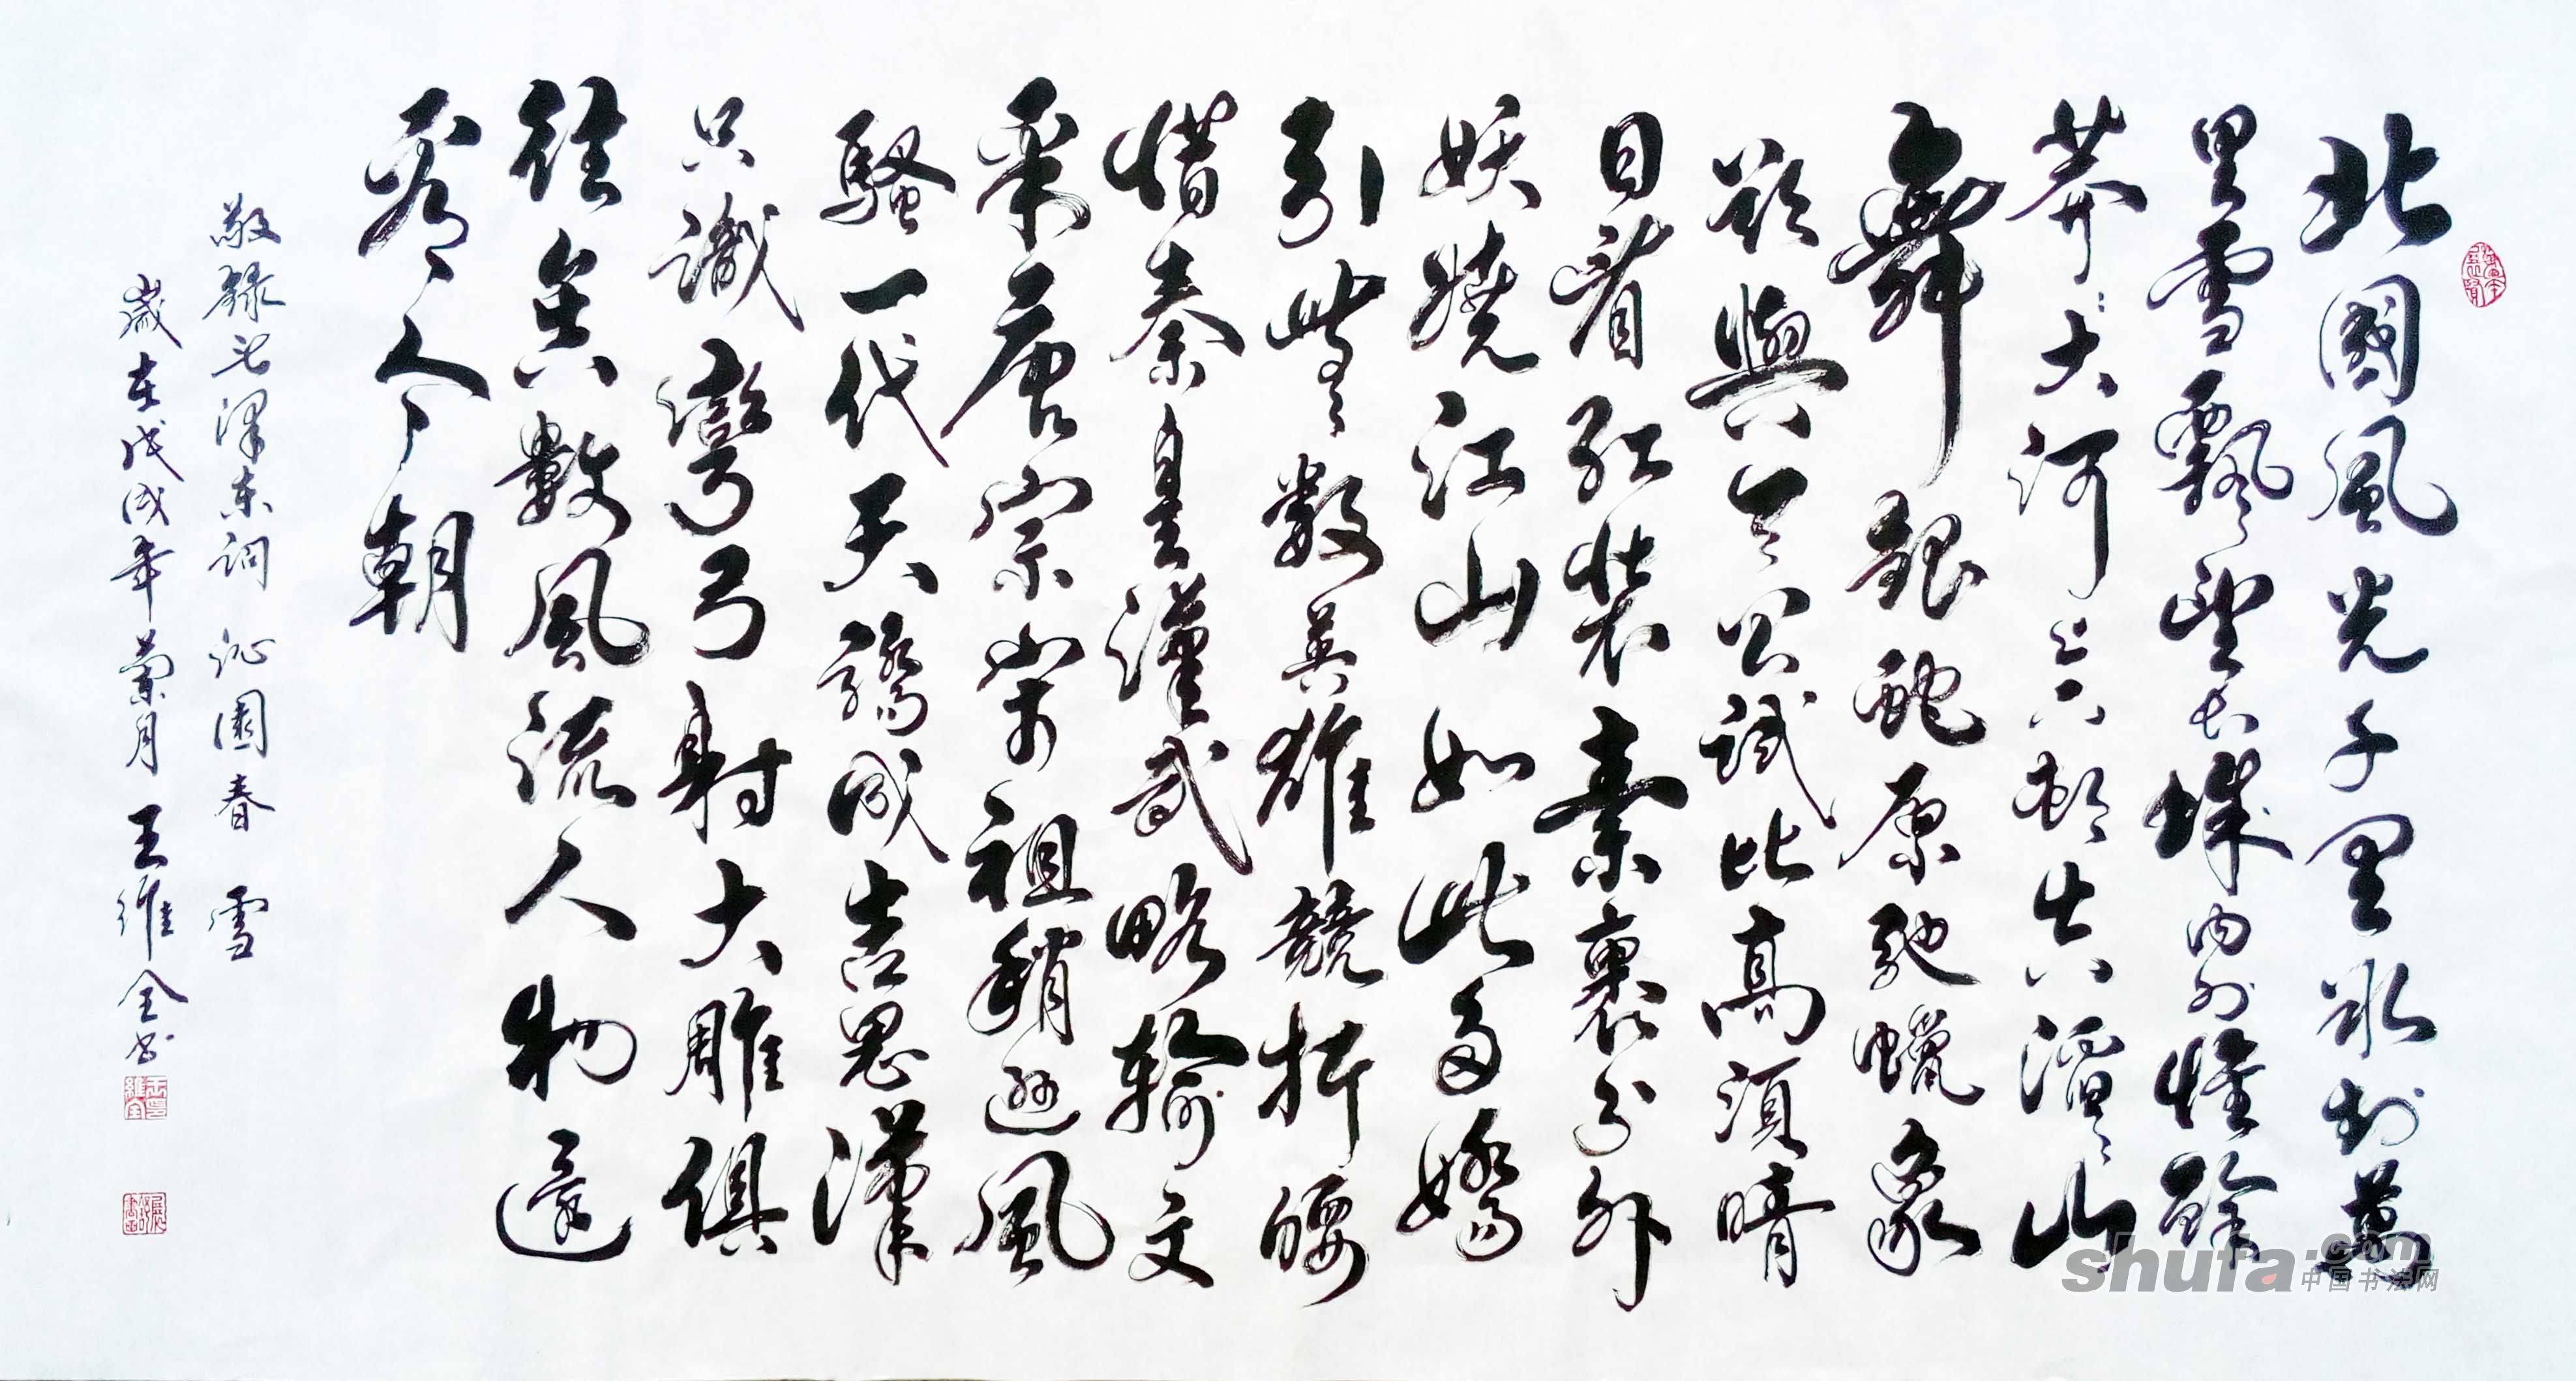 北國風光千里冰封萬
里雪飄望長城內外惟餘
莽〻大河上下頓失滔〻山
舞銀蛇原馳蠟象
欲與天公試比高須晴
日看紅裝素裹分外
妖嬈江山如此多嬌
引無數英雄競折腰
惜秦皇漢武略輸文
采唐宗宋祖稍遜風
騷一代天驕成吉思漢
只識彎弓射大雕俱
往矣數風流人物還
看今朝
敬録毛澤東詞 沁園春 雪
歲在戊戌年月王維全書
shufa.com
中国书法网